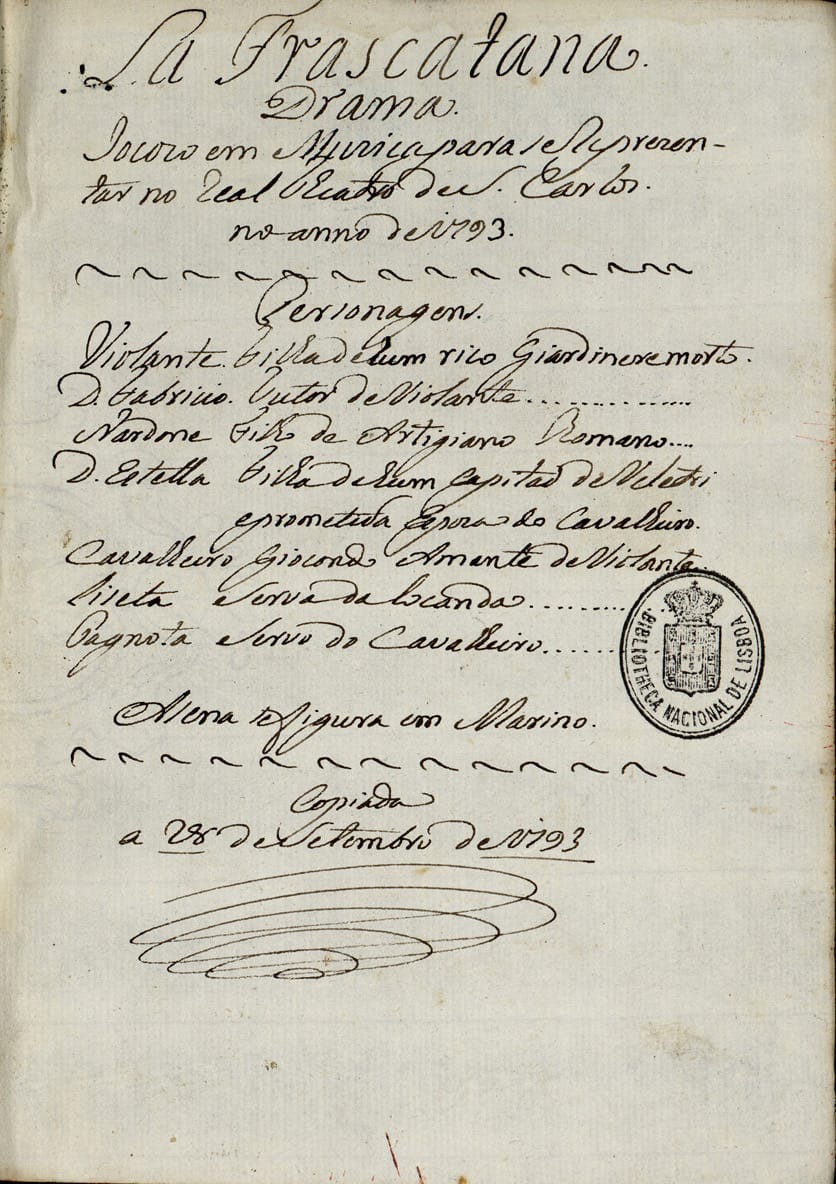 La Frascatana.
Drama.
Jocozo em Muzica para se Reprezen-
tar no Real Teatro de S. Carlos.
no anno de 1793.
Personagens.
Violante. Filha de hum rico Giardinere morto.
D. Fabricio. Tutor de Violante
Nardone Filho de Artigiano Romano....
D. Estella Filha de hum Capitaõ de Veletri
e prometida Espoza do Cavalheiro.
Cavalheiro Giocondo Amante de Violante.
Liseta Serva da Locanda
Pagnota Servo do Cavalheiro
A Sena se figura em Marino.
Copiada
a 28 de Setembro de 1793
BIBLIOTHECA NACIONAL DE LISBOA